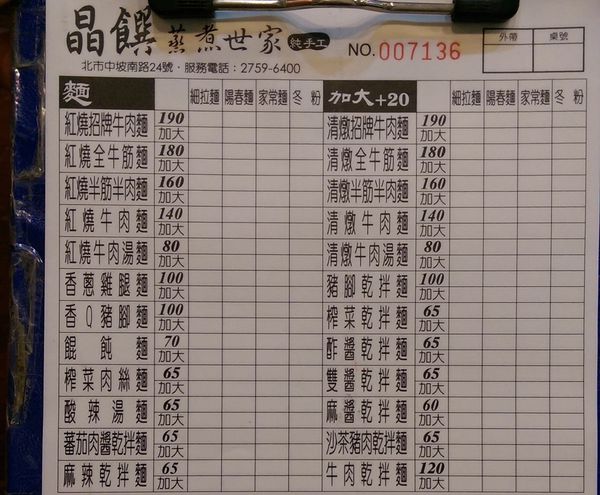 晶饌蒸煮世家 純手工 NO.007136 外帶 桌號
北市中坡南路24號・服務電話:2759-6400
麵 細拉麵 陽春麵 家常麵 冬粉 加大+20 細拉麵 陽春麵 家常麵 冬粉
紅燒招牌牛肉麵 190 加大 清燉招牌牛肉麵 190 加大
紅燒全牛筋麵 180 加大 清燉全牛筋麵 180 加大
紅燒半筋半肉麵 160 加大 清燉半筋半肉麵 160 加大
紅燒牛肉麵 140 加大 清燉牛肉麵 140 加大
紅燒牛肉湯麵 80 加大 清燉牛肉湯麵 80 加大
香蔥雞腿麵 100 加大 豬腳乾拌麵 100 加大
香Q豬腳麵 100 加大 榨菜乾拌麵 65 加大
餛飩麵 70 加大 酢醬乾拌麵 65 加大
榨菜肉絲麵 65 加大 雙醬乾拌麵 65 加大
酸辣湯麵 65 加大 麻醬乾拌麵 60 加大
蕃茄肉醬乾拌麵 65 加大 沙茶豬肉乾拌麵 65 加大
麻辣乾拌麵 65 加大 牛肉乾拌麵 120 加大